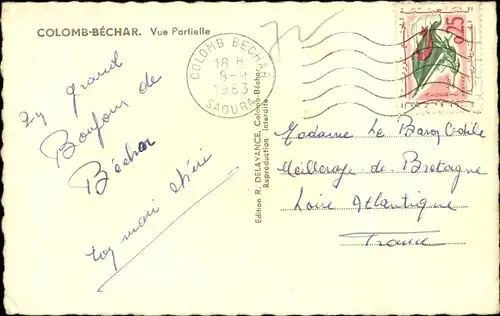 COLOMB-BÉCHAR. Vue Partielle
COLOMB BECHAR
18 H
8-
1963
SAOURA
0,25
grand
Bonjour de
Béchar
ton mari chéri
Edition R. DELAYANCE, Colomb-Béchar
Reproduction Interdite
Madame Le Barq Odile
Meilleraye de Bretagne
Loire Atlantique
France